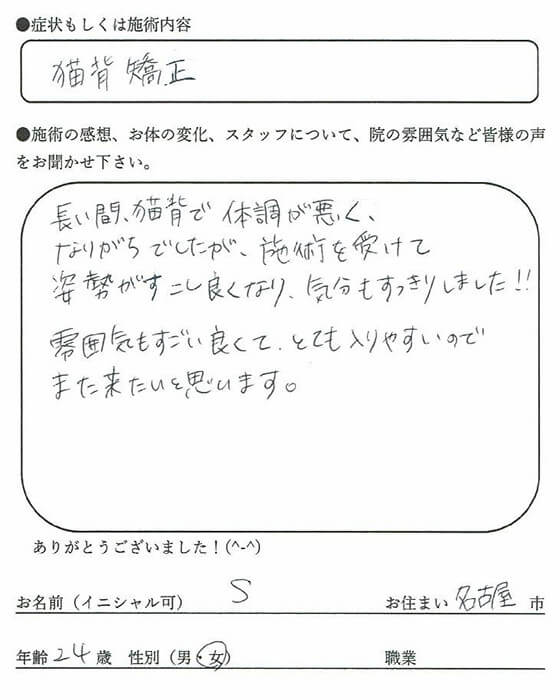 ●症状もしくは施術内容
猫背矯正
●施術の感想、お体の変化、スタッフについて、院の雰囲気など皆様の声
をお聞かせ下さい。
長い間、猫背で体調が悪く、
なりがちでしたが、施術を受けて
姿勢がすこし良くなり、気分もすっきりしました!!
雰囲気もすごい良くて、とても入りやすいので
また来たいと思います。
ありがとうございました！(^-^)
お名前（イニシャル可） S お住まい 名古屋 市
年齢 24 歳 性別（男・女） 職業